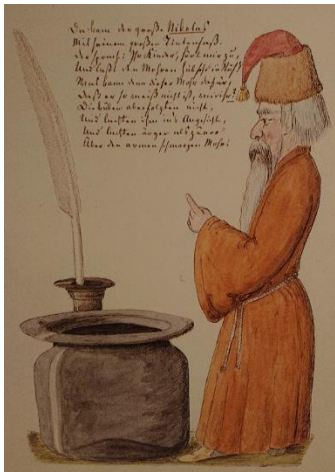 Da kam der große Nikolas
Mit seinem großen Tintenfaß.
Der sprach: Ihr Kinder, hört mir zu,
Und laßt den Mohren hübsch in Ruh!
Was kann denn dieser Mohr dafür,
Daß er so weiß nicht ist, wie ihr?
Die Buben aber folgten nicht,
Und lachten ihm in's Angesicht,
Und lachten ärger als zuvor
Über den armen schwarzen Mohr.